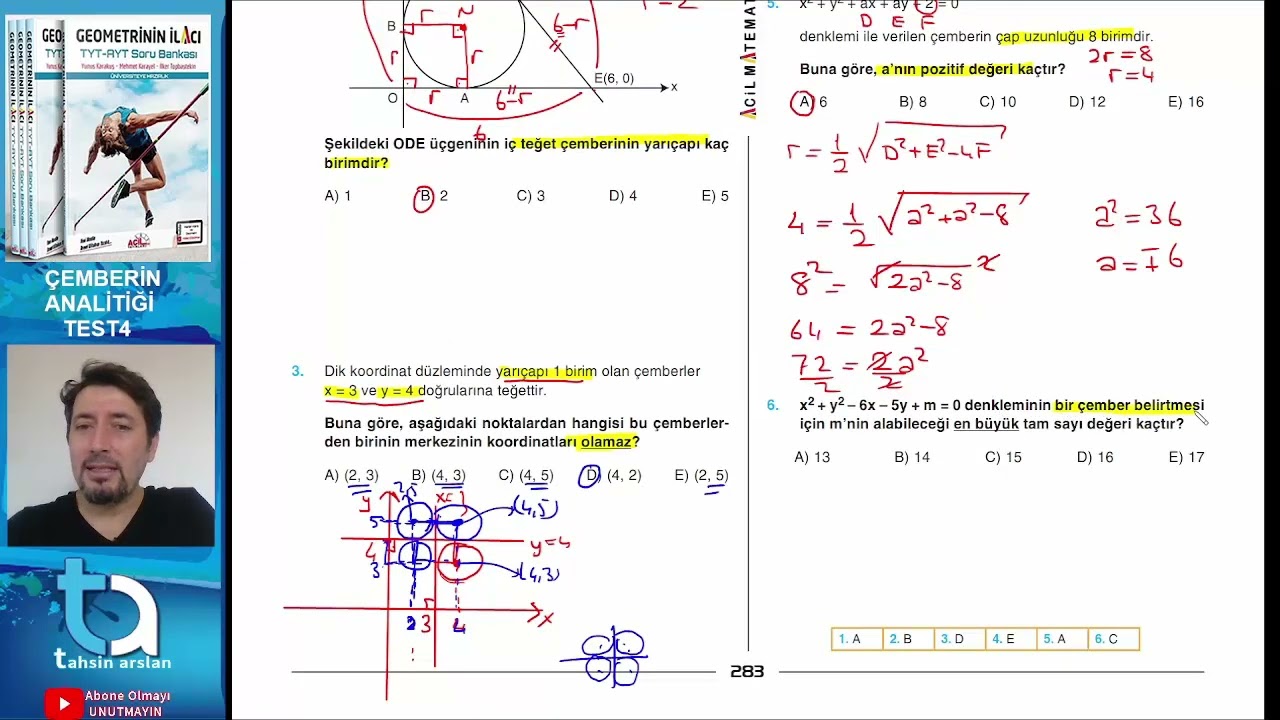 GEOMETRİNİN İLACI
TYT-AYT Soru Bankası
Yunus Karakuş - Mehmet Karayel - İlker Topbastekin
ÜNİVERSİTEYE HAZIRLIK
ÇEMBERİN
ANALİTİĞİ
TEST4
tahsin arslan
Abone Olmayı
UNUTMAYIN
B
r
N
r
r
6-r
E(6, 0)
x
O
r
A
6-r
6
r = 2
Şekildeki ODE üçgeninin iç teğet çemberinin yarıçapı kaç
birimdir?
A) 1 B) 2 C) 3 D) 4 E) 5
3. Dik koordinat düzleminde yarıçapı 1 birim olan çemberler
x = 3 ve y = 4 doğrularına teğettir.
Buna göre, aşağıdaki noktalardan hangisi bu çemberler-
den birinin merkezinin koordinatları olamaz?
A) (2, 3) B) (4, 3) C) (4, 5) D) (4, 2) E) (2, 5)
y
5
(4,5)
4
y=4
3
(4,3)
2 3 4
x
ACİL MATEMAT
5. x² + y² + ax + ay + 2 = 0
D E F
denklemi ile verilen çemberin çap uzunluğu 8 birimdir.
2r = 8
Buna göre, a'nın pozitif değeri kaçtır?
r = 4
A) 6 B) 8 C) 10 D) 12 E) 16
r = 1/2 √D²+E²-4F
4 = 1/2 √a²+a²-8
a² = 36
8² = √2a²-8 ²
a = ∓6
64 = 2a²-8
72/2 = 2a²/2
6. x² + y² – 6x – 5y + m = 0 denkleminin bir çember belirtmesi
için m'nin alabileceği en büyük tam sayı değeri kaçtır?
A) 13 B) 14 C) 15 D) 16 E) 17
1. A 2. B 3. D 4. E 5. A 6. C
283